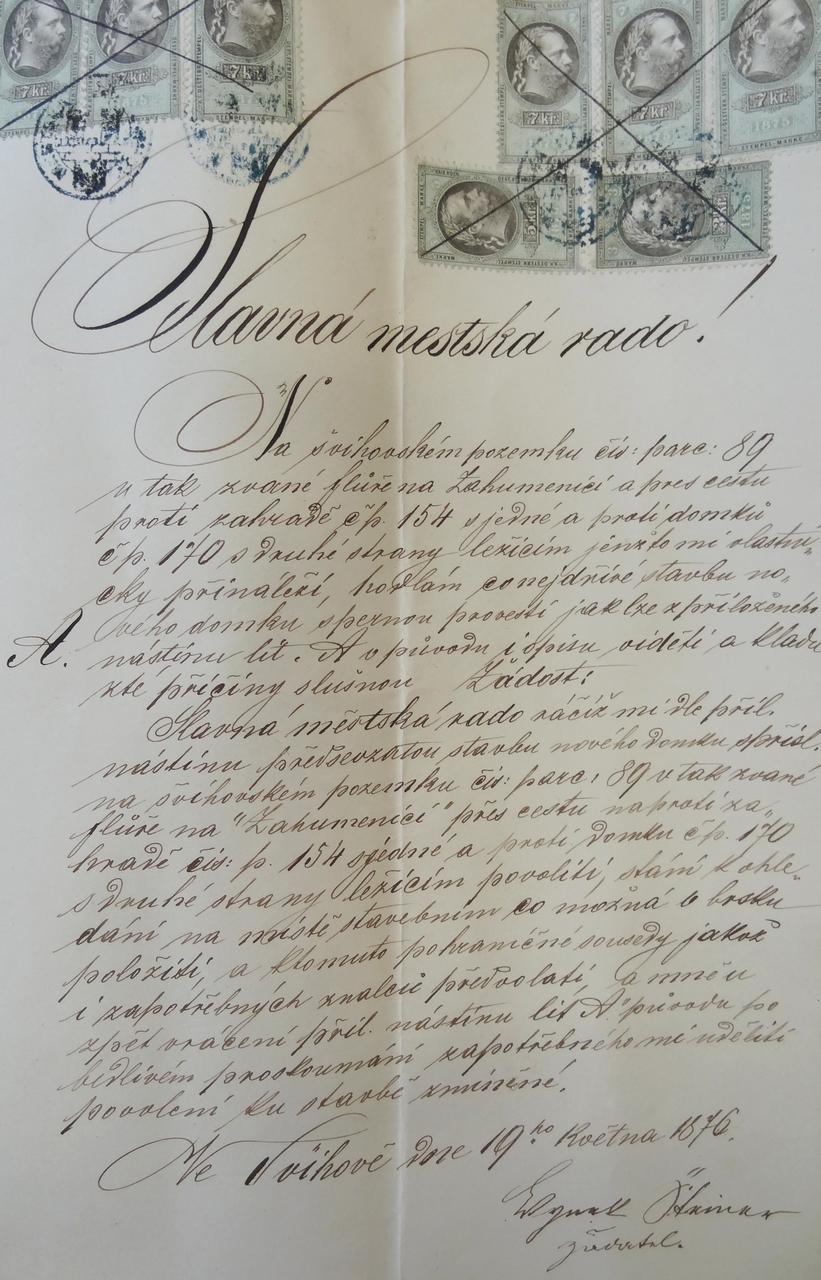 7 kr. 7 kr. 7 kr. 7 kr. 7 kr. 7 kr.
1875 1875
STEMPEL-MARKE
5 kr.
1875
Slavná mestská rado!
Na švihovském pozemku čís: parc: 89
v tak zvané flúře na Zahumenici a pres cestu
proti zahradě čp. 154 s jedné a proti domků
čp. 170 s druhé strany ležícím jenžto mi vlastni„
cky přinaleží, hodlám co nejdříve stavbu no„
vého domku speznou provesti jak lze z přiloženého
A. nástinu lit. A v původu i spisu viděti a kladu
zté příčiny slušnou Žádost:
Slavná městská rado račiž mi dle přil.
nástinu předsevzatou stavbu nového domku s přísl.
na švihovském pozemku čís: parc: 89 v tak zvané
flúře na "Zahumenici" přes cestu naproti za„
hradě čís: p. 154 s jedné a proti domku čp. 170
s druhé strany ležícím povoliti, stání k ohle„
dání na místě stavebním co možná v brsku
položiti, a ktomuto pohraničné sousedy jakož
i zapotřebných znalců předvolati, a mněu
zpět vrácení přil. nástinu lit A. původu po
bedlivém proskoumání zapotřebného mi uděliti
povolení ku stavbě zmíněné.
Ve Švihově dne 19ho Května 1876.
Hynek Šteiner
žadatel.